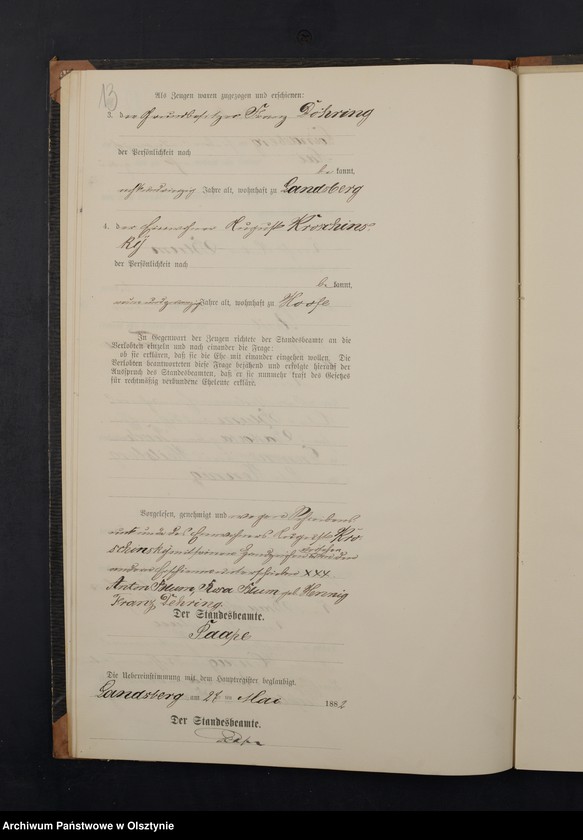 13
Als Zeugen waren zugezogen und erschienen:
3. der Grundbesitzer Franz Döhring
der Persönlichkeit nach
be kannt,
Jahre alt, wohnhaft zu Landsberg
4. der Einwohner August Kroschins-
ky
der Persönlichkeit nach
be kannt,
Jahre alt, wohnhaft zu Hoofe
In Gegenwart der Zeugen richtete der Standesbeamte an die
Verlobten einzeln und nach einander die Frage:
ob sie erklären, daß sie die Ehe mit einander eingehen wollen. Die
Verlobten beantworteten diese Frage bejahend und erfolgte hierauf der
Ausspruch des Standesbeamten, daß er sie nunmehr kraft des Gesetzes
für rechtmäßig verbundene Eheleute erkläre.
Vorgelesen, genehmigt und wegen Schreibens
unkunde des Einwohners August Kro
schinsky mit seinem Handzeichen versehen von den
anderen Erschienenen unterschrieben XXX
Anton Blum, Rosa Blum geb. Hennig
Franz Döhring
Der Standesbeamte.
Paape
Die Uebereinstimmung mit dem Hauptregister beglaubigt.
Landsberg am 27 ten Mai 1882
Der Standesbeamte.
Archiwum Państwowe w Olsztynie